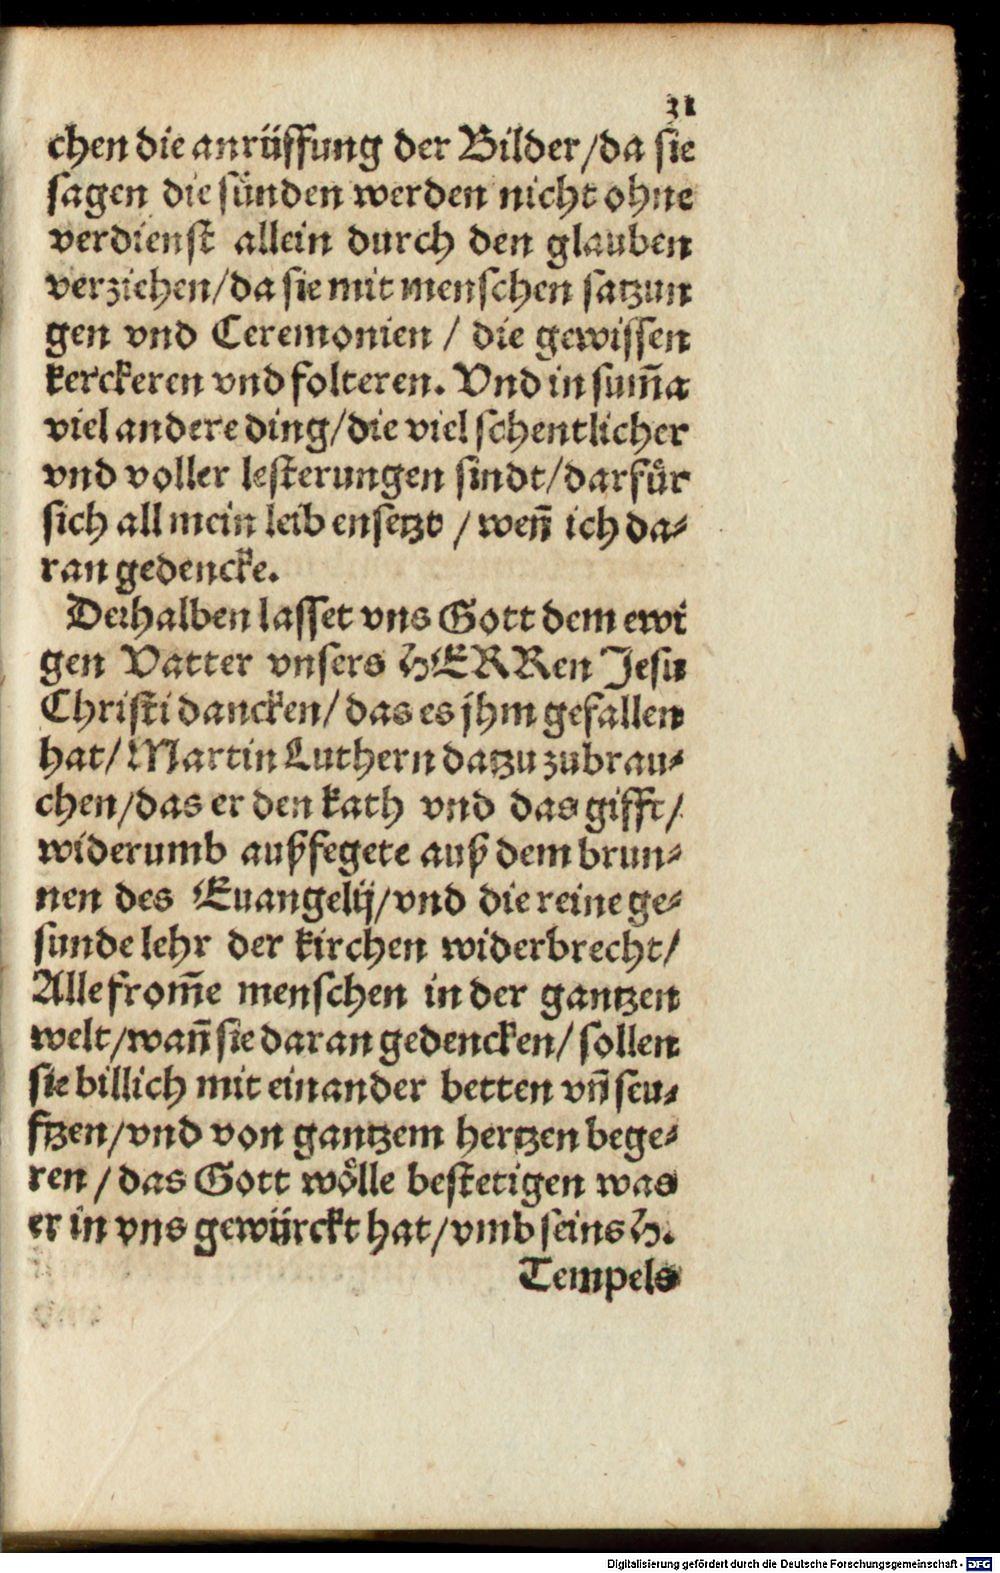 31
chen die anrüffung der Bilder/da sie
sagen die sünden werden nicht ohne
verdienst allein durch den glauben
verziehen/da sie mit menschen satzun
gen vnd Ceremonien / die gewissen
kerckeren vnd folteren. Vnd in sum̃a
viel andere ding/die viel schentlicher
vnd voller lesterungen sindt/darfür
sich all mein leib ensetzt / weñ ich da⸗
ran gedencke.
Derhalben lasset vns Gott dem ewi
gen Vatter vnsers HERRen Jesu
Christi dancken/ das es jhm gefallen
hat/ Martin Luthern datzu zubrau⸗
chen/das er den kath vnd das gifft/
widerumb außfegete auß dem brun⸗
nen des Euangelij/vnd die reine ge⸗
sunde lehr der kirchen widerbrecht/
Alle from̃e menschen in der gantzen
welt/wañ sie daran gedencken/ sollen
sie billich mit einander betten vñ seu⸗
ftzen/vnd von gantzem hertzen bege⸗
ren / das Gott wölle bestetigen was
er in vns gewürckt hat/vmb seins H.
Tempels
Digitalisierung gefördert durch die Deutsche Forschungsgemeinschaft - DFG